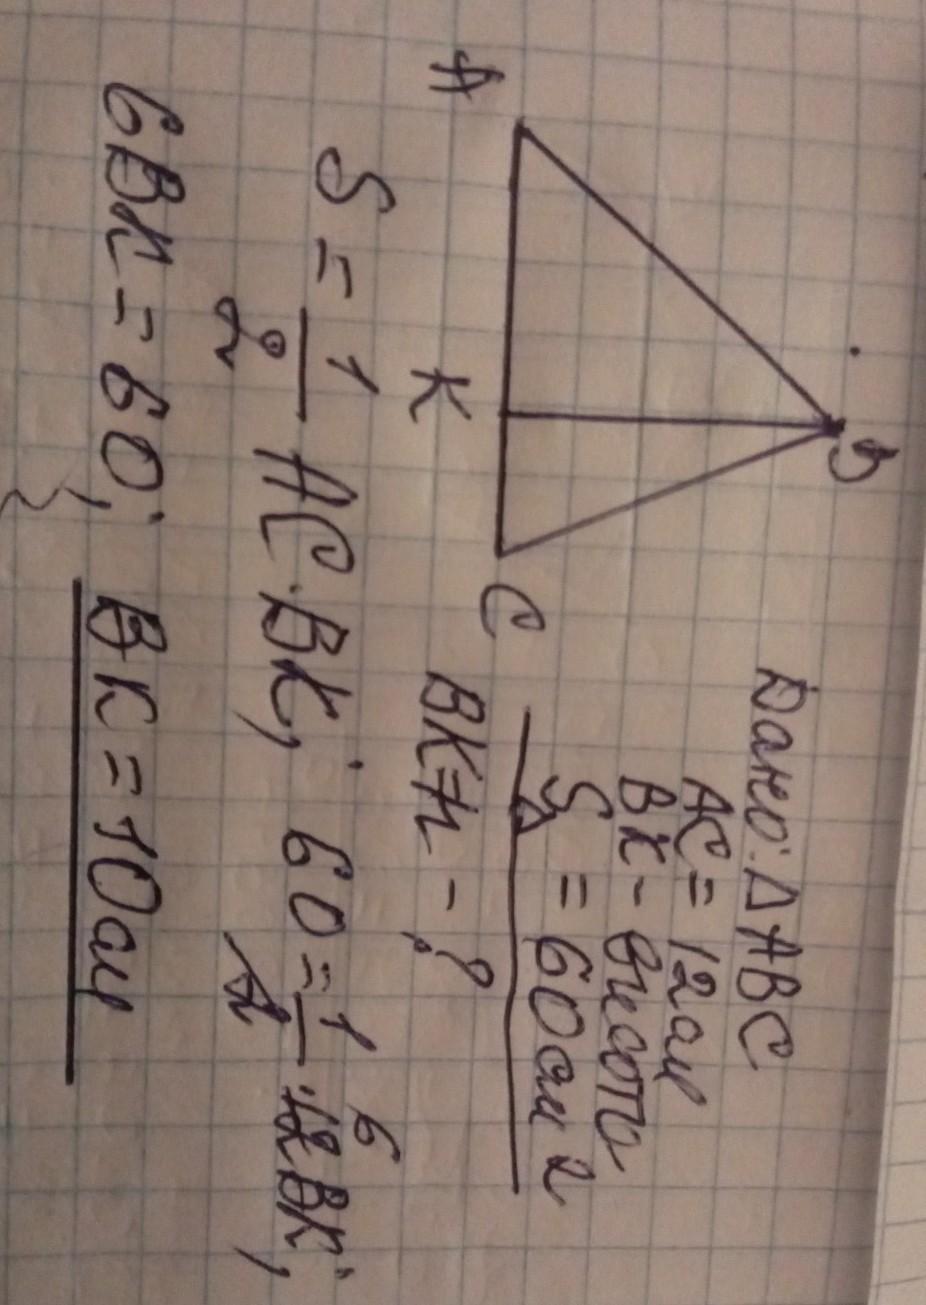 B
A
K
C
Дано: Δ ABC
AC = 12 см
BK - висота
S Δ = 60 см 2
BK = h - ?
S = 1/2 AC · BK; 60 = 1/2 · 12 BK; 6
6BK = 60; BK = 10 см